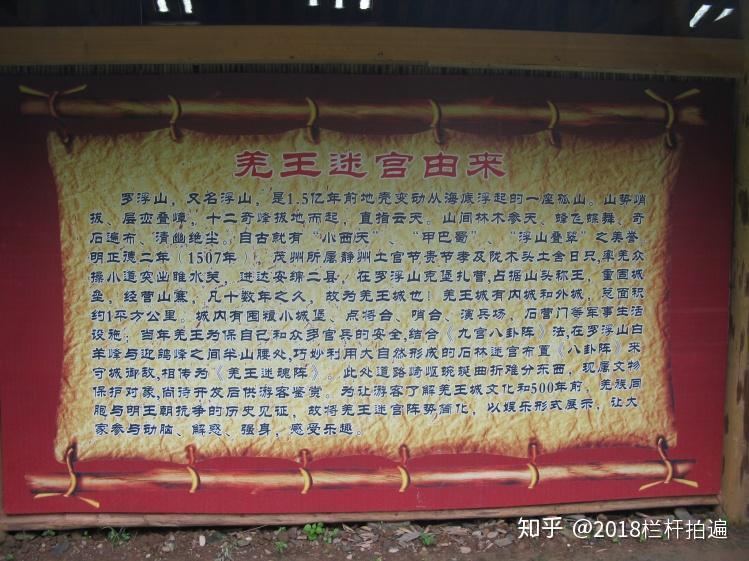 羌王迷宫由来
罗浮山，又名浮山，是1.5亿年前地壳变动从海底浮起的一座孤山。山势峭
拔、层峦叠嶂，十二奇峰拔地而起，直指云天。山间林木参天、蜂飞蝶舞、奇
石遍布、清幽绝尘。自古就有“小西天”、“甲巴蜀”、“浮山叠翠”之美誉。
明正德二年（1507年），茂州所属静州土官节贵节孝及陇木头土舍日只,率羌众
操小道突出睢水关，进达安绵二县，在罗浮山克堡扎营,占据山头称王，重固城
垒，经营山寨，凡十数年之久，故为羌王城也！羌王城有内城和外城，总面积
约1平方公里。城内有围粮小城堡、点将台、哨台、演兵场，石营门等军事生活
设施；当年羌王为保自己和众多官兵的安全,结合《九宫八卦阵》法,在罗浮山白
羊峰与迎鸽峰之间半山腰处,巧妙利用大自然形成的石林迷宫布置《八卦阵》来
守城御敌,相传为《羌王迷魂阵》。此处道路崎岖蜿蜒曲折难分东西，现属文物
保护对象,尚待开发后供游客鉴赏。为让游客了解羌王城文化和500年前，羌族同
胞与明王朝抗争的历史见证，故将羌王迷宫阵势简化，以娱乐形式展示，让大
家参与动脑、解惑、强身，感受乐趣。
知乎 @2018栏杆拍遍